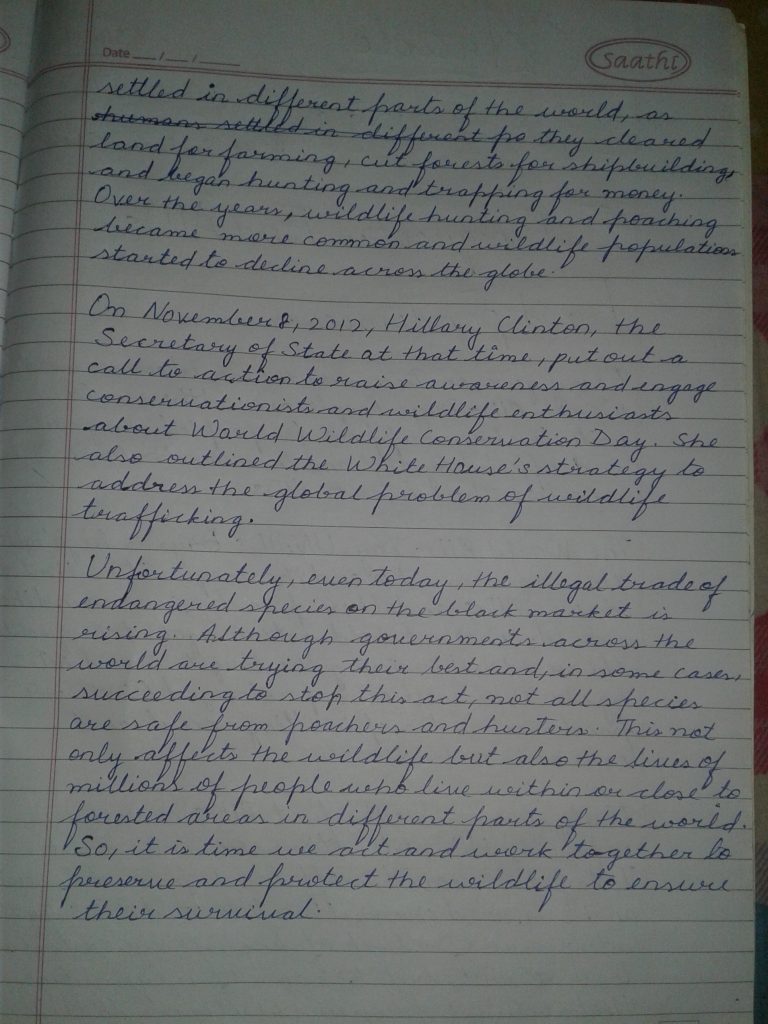 Date __/__/____
saathi
settled in different parts of the world, as
humans settled in different po they cleared
land for farming, cut forests for shipbuilding,
and began hunting and trapping for money.
Over the years, wildlife hunting and poaching
became more common and wildlife populations
started to decline across the globe.
On November 8, 2012, Hillary Clinton, the
Secretary of State at that time, put out a
call to action to raise awareness and engage
conservationists and wildlife enthusiasts
about World Wildlife Conservation Day. She
also outlined the White House's strategy to
address the global problem of wildlife
trafficking.
Unfortunately, even today, the illegal trade of
endangered species on the black market is
rising. Although governments across the
world are trying their best and, in some cases,
succeeding to stop this act, not all species
are safe from poachers and hunters. This not
only affects the wildlife but also the lives of
millions of people who live within or close to
forested areas in different parts of the world.
So, it is time we act and work together to
preserve and protect the wildlife to ensure
their survival.